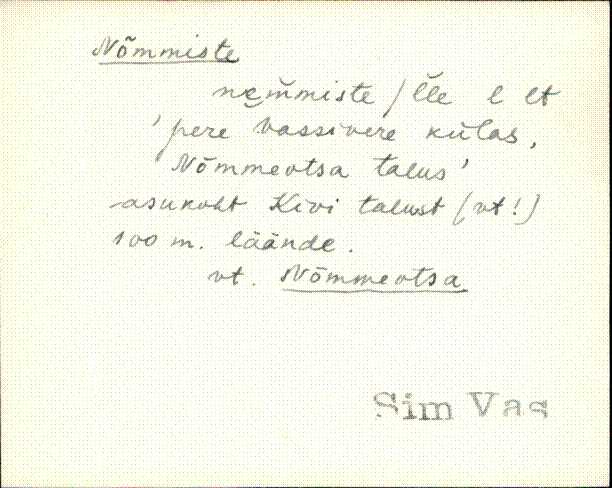 Nõmmiste
nem̆miste / l̆le l lt
'pere Vassivere külas,
Nõmmeotsa talus'
asukoht Kivi talust (vt!)
100 m. läände.
vt. Nõmmeotsa
Sim Vas